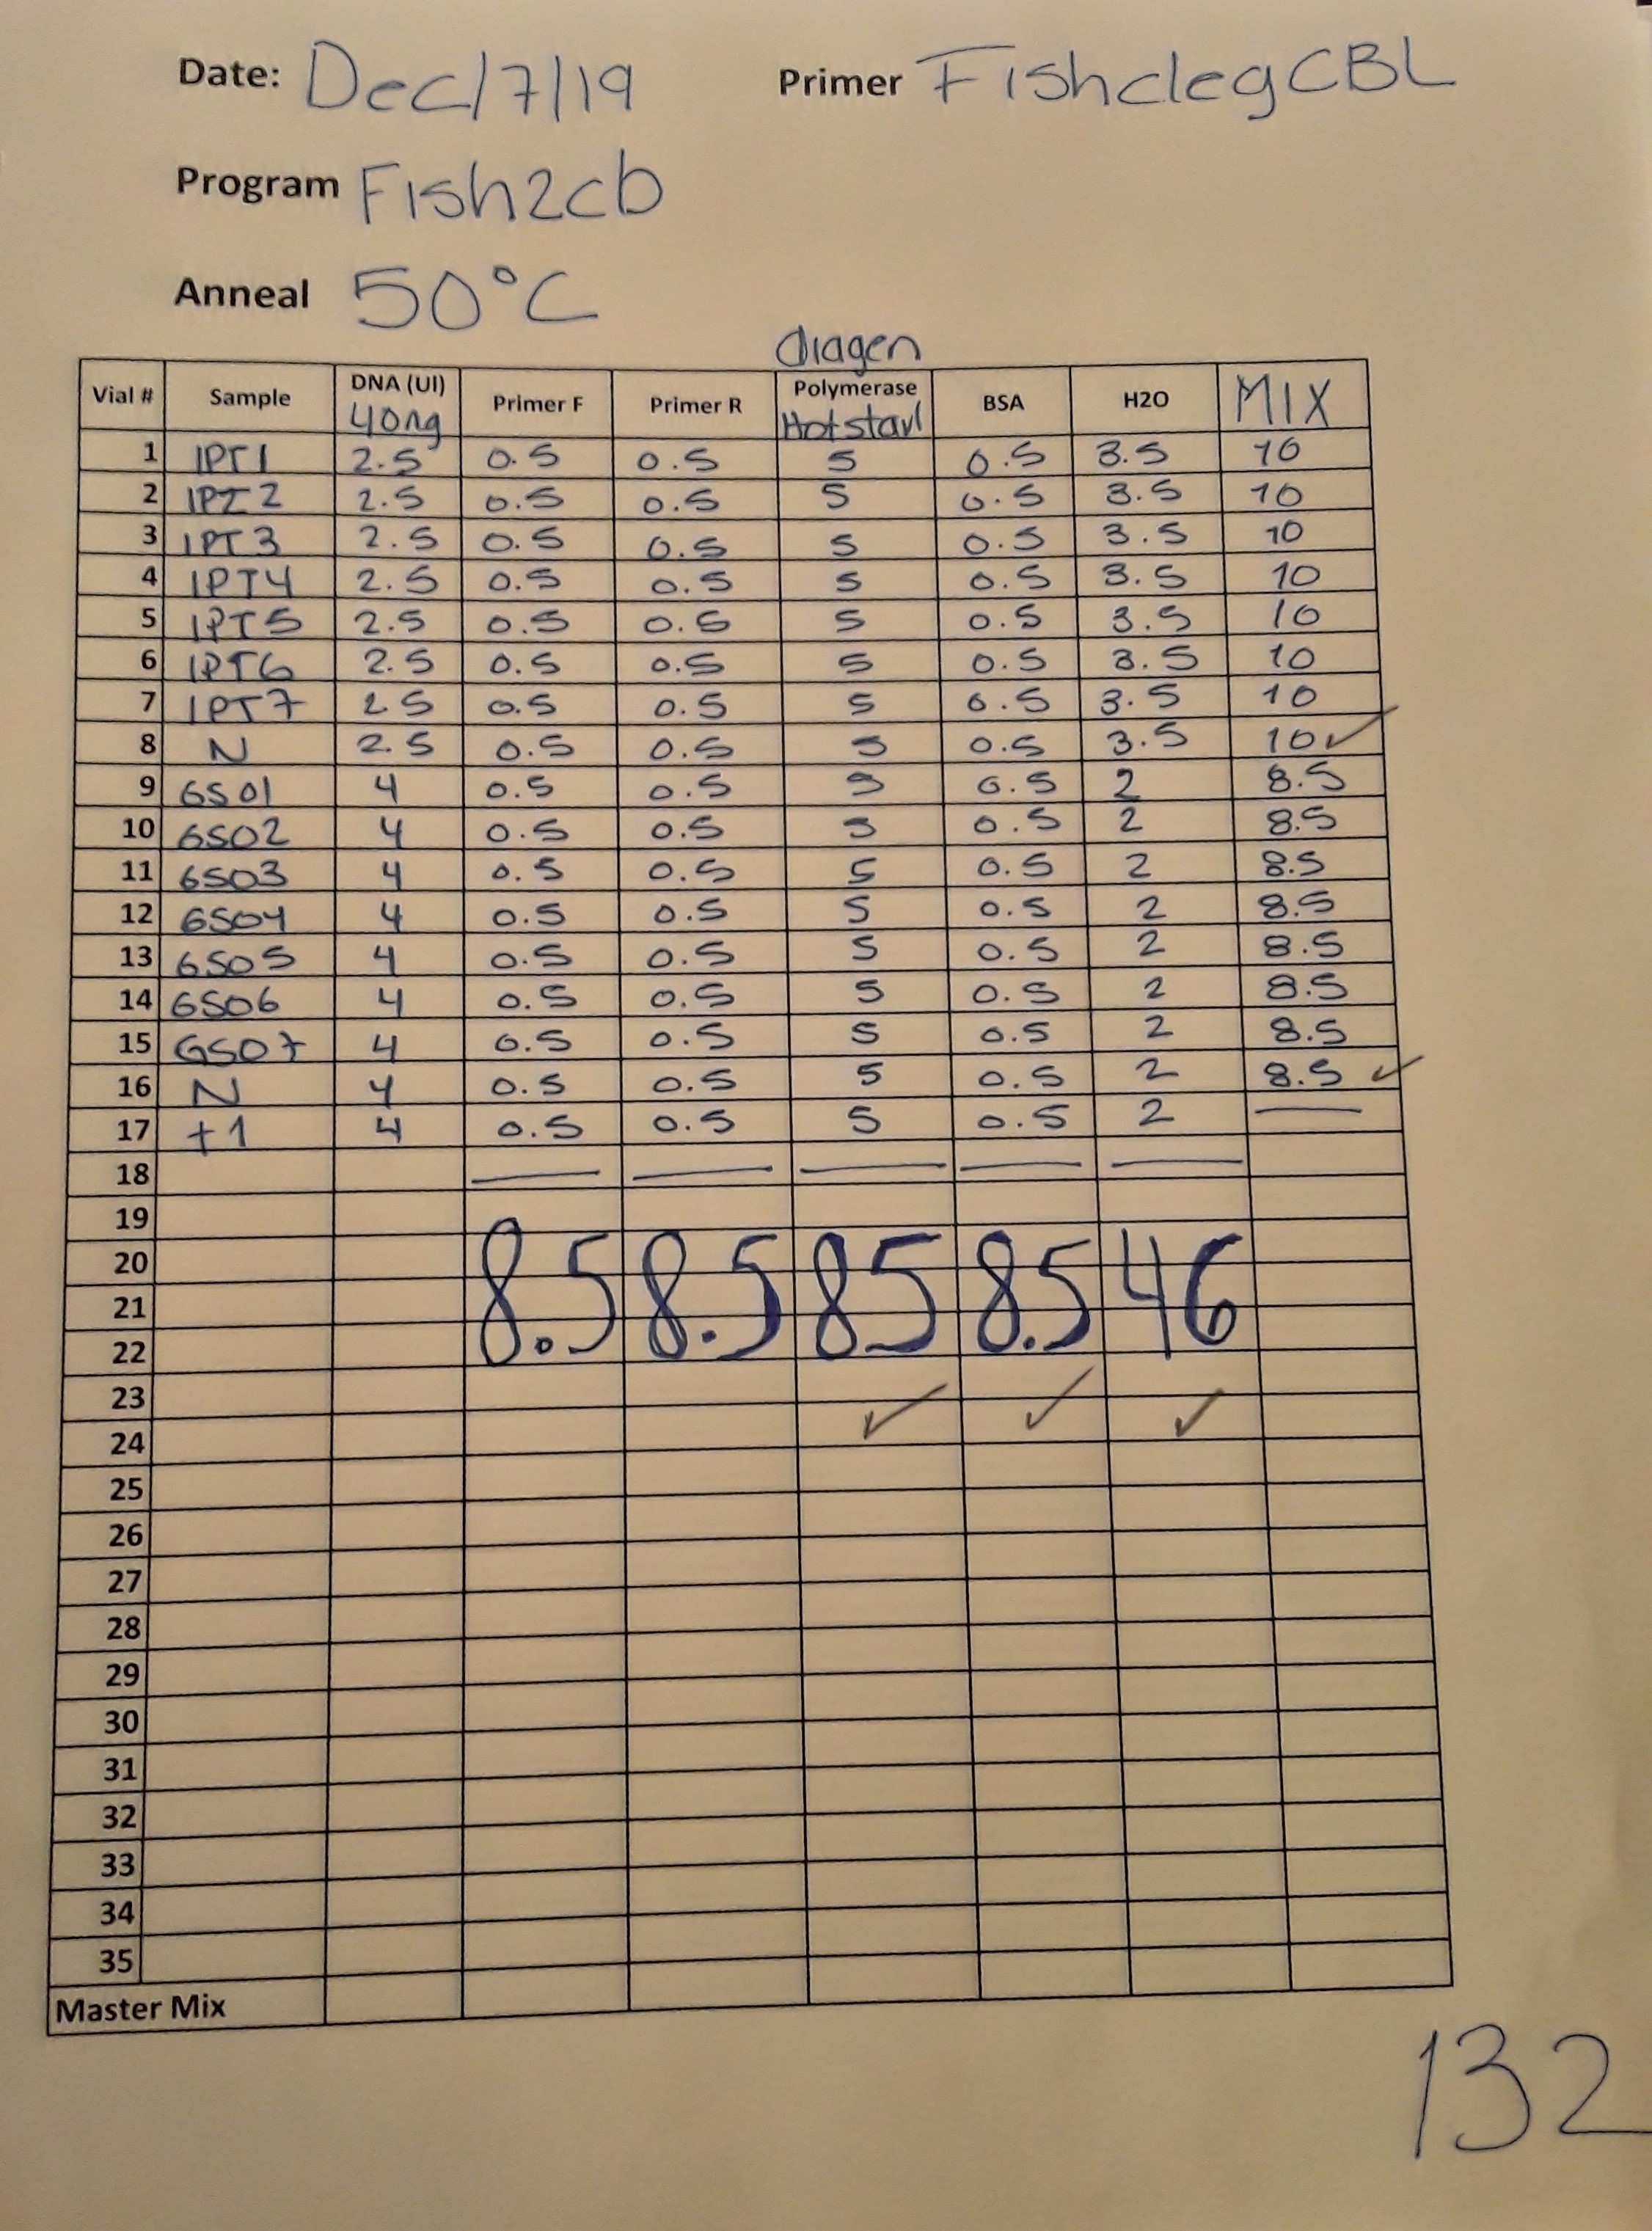 Date: Dec/7/19 Primer FishclegCBL
Program Fish2cb
Anneal 50°C
Qiagen
Vial # Sample DNA (Ul) 40ng Primer F Primer R Polymerase Hotstart BSA H2O MIX
1 IPT1 2.5 0.5 0.5 5 0.5 3.5 10
2 IPT2 2.5 0.5 0.5 5 0.5 3.5 10
3 IPT3 2.5 0.5 0.5 5 0.5 3.5 10
4 IPT4 2.5 0.5 0.5 5 0.5 3.5 10
5 IPT5 2.5 0.5 0.5 5 0.5 3.5 10
6 IPT6 2.5 0.5 0.5 5 0.5 3.5 10
7 IPT7 2.5 0.5 0.5 5 0.5 3.5 10
8 N 2.5 0.5 0.5 5 0.5 3.5 10 ✓
9 GS01 4 0.5 0.5 5 0.5 2 8.5
10 GS02 4 0.5 0.5 5 0.5 2 8.5
11 GS03 4 0.5 0.5 5 0.5 2 8.5
12 GS04 4 0.5 0.5 5 0.5 2 8.5
13 GS05 4 0.5 0.5 5 0.5 2 8.5
14 GS06 4 0.5 0.5 5 0.5 2 8.5
15 GS07 4 0.5 0.5 5 0.5 2 8.5
16 N 4 0.5 0.5 5 0.5 2 8.5 ✓
17 +1 4 0.5 0.5 5 0.5 2 —
18 — — — — —
19
20
21 8.5 8.5 85 8.5 46
22
23 ✓ ✓ ✓
24
25
26
27
28
29
30
31
32
33
34
35
Master Mix
132